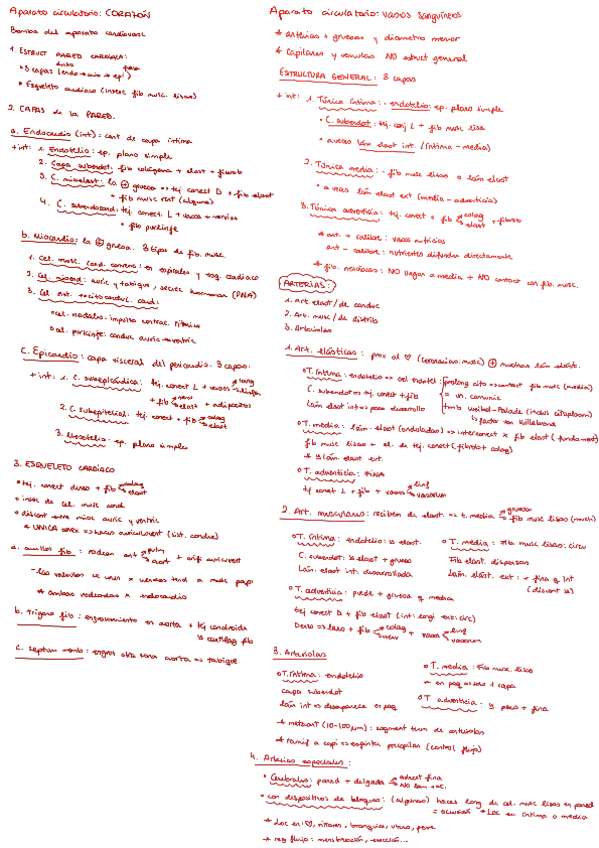 Aparato circulatorio: CORAZÓN
Bomba del aparato cardiovasc
1. ESTRUCT PARED CARDIACA:
* 3 capas (endo→mio→epi)
* Esqueleto cardiaco (insec fib musc. lisas)
2. CAPAS de la PARED.
a. Endocardio (int): cont de capa íntima
+int: 1. Endotelio: ep. plano simple
2. Capa subendot: fib colágena + elast + fibrob
3. C. mioelast: la ⊕ gruesa => tej conect D + fib elast
* fib musc
4. C. subendocard: tej conect. L + vasos + nervios
* fib purkinje
b. Miocardio: la ⊕ gruesa. 3 tipos de fib. musc
1. Cel. musc. card. contrac: en espirales y esq cardiaco
2. Cel. miocard: auric y tabique, secrec hormonas (PNA)
3. Cel. conduc. card:
o cel. nodales: impulso contrac. rítmica
o cel. purkinje: conduc auric→ventric
c. Epicardio: capa visceral del pericardio. 3 capas:
+int: 1. C. subepicárdica: tej. conect L + vasos
+ fib elast + adipocitos
2. C. subepitelial: tej. conect + fib colag elast
3. Mesotelio: ep. plano simple
3. ESQUELETO CARDIACO
* tej. conect denso + fib colag elast
o insec de cel. musc card
o discont entre músc auric y ventric
* UNICA conex => haces auriculovent (sist. conduc)
a. anillos fib: rodean art pulm aort + orif auriculovent
* ambas rodeadas x endocardio
b. trígono fib: engrosamiento en aorta + tej condroide
↳ cartílag fib
c. septum memb: engros otra zona aorta => tabique
Aparato circulatorio: vasos sanguíneos
* Arterias + gruesas y diametro menor
* Capilares y venulas NO estruct general
ESTRUCTURA GENERAL: 3 capas
+ int: 1. Túnica íntima: · endotelio: ep. plano simple
* C. subendot: tej. conj L + fib musc lisa
* a veces lám elast int. (íntima - media)
2. Túnica media: - fib musc lisas o lám elast
* a veces lám elast ext (media - adventicia)
3. Túnica adventicia: tej. conect + fib colag elast + fibrob
* art + calibre: vasos nutricios
art - calibre: nutrientes difunden directamente
* fib. nerviosas: NO llegan a media + NO contact con fib musc.
ARTERIAS:
1. art elast / de conduc
2. Art. musc / de distrib
3. Arteriolas
1. Art. elásticas: prox al ♡ (coronarias: musc) ⊕ muestran lám elást.
o T. íntima: endotelio => cel endotel: prolong cito => contact fib musc (media)
= un. comunic
C. subendot => tej conect + fib
lám elast int => poco desarrollo
tmb weibel-Palade (inclus citoplasm)
↳ factor von Willebrand
o T. media: lám. elast (onduladas) => interconect x fib elast (fundamost)
fib musc lisas + el. de tej. conect (fibrob + colag)
* lám elast ext.
o T. adventicia: FINA
tej conect L + fib + vasos linf vasorum
2. Art. musculares: reciben de elast. => t. media gruesa fib musc lisas (much)
o T. íntima: endotelio: = elast.
C. subendot: = elast + grueso
Lám. elast int. desarrollada
o T. media: Fib musc lisas: circu
Fib elast dispersas
Lám elást. ext: + fina q int
(discont)
o T. adventicia: puede + gruesa q media
tej conect D + fib elast (int: longi ext: circ)
Denso => laxo + fib colag nerv + vasos linf vasorum
3. Arteriolas
o T. íntima: endotelio
capa subendot
lám int => desaparece en peq
o T. media: Fib musc lisas
- en peq => solo 1 capa
o T. adventicia: poco + fina
* metaart (10-100μm): segment term de arteriolas
* ramif a capi => esfínter precapilar (control flujo)
4. Arterias especiales:
* Cerebrales: pared + delgada advent fina
* con dispositivos de bloqueo: (algunas) haces long de cel. musc lisas en pared
= oclusión * Loc en íntima o media
* Loc en: ♡, riñones, bronquios, útero, pene
* reg flujo: menstruación, erección...